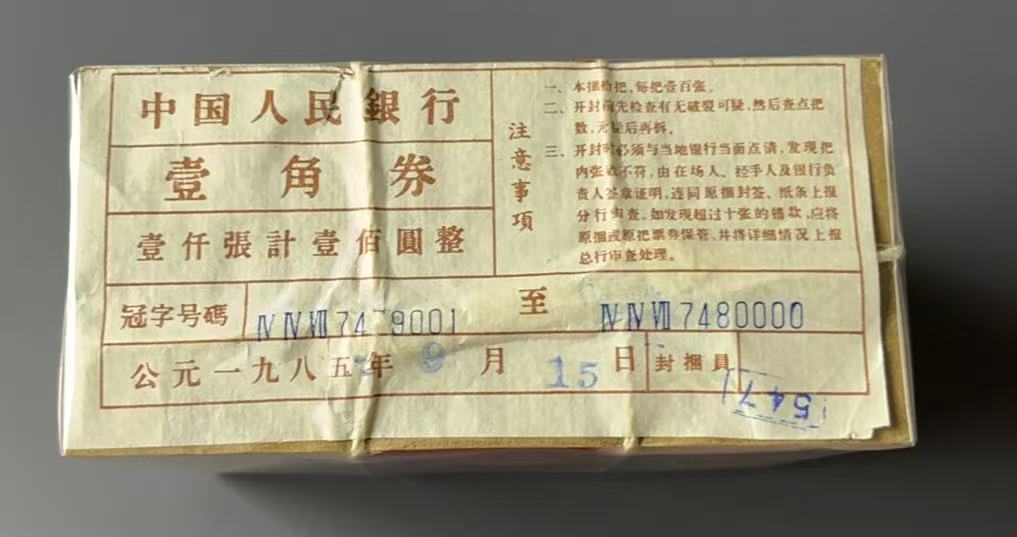 中国人民銀行
壹角券
壹仟張計壹佰圓整
注意事項
一、本捆拾把，每把壹百张。
二、开封前先检查有无破裂可疑，然后查点把
数，无疑后再拆。
三、开封时必须与当地银行当面点清，发现把
内张数不符，由在场人、经手人及银行负
责人签章证明，连同原捆封签、纸条上报
分行审查。如发现超过十张的错款，应将
原捆或原把票券保管，并将详细情况上报
总行审查处理。
冠字号碼 ⅣⅣⅦ7479001 至 ⅣⅣⅦ7480000
公元一九八五年9月15日 封捆員
5471